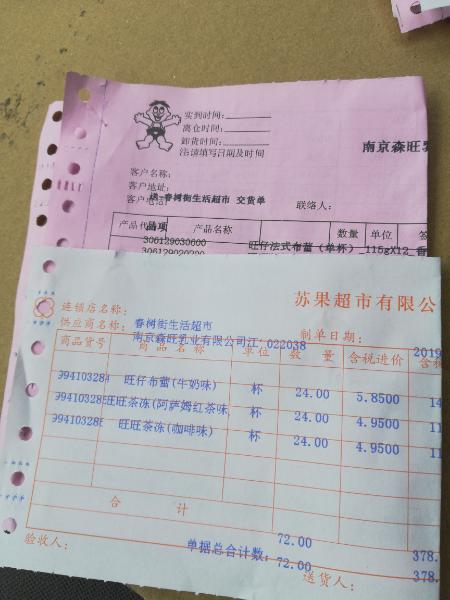 实到时间:
离仓时间:
卸货时间:
注:请填写日期及时间
南京森旺乳
客户名称:
客户地址:
客户电话:
春树街生活超市 交货单
联络人:
产品代码 品项 产品名称 数量 单位
306129030600 旺仔法式布蕾(单杯)_115gX12_香
306129020200
苏果超市有限公
连锁店名称: 春树街生活超市
供应商名称: 南京森旺乳业有限公司江:022038 制单日期: 2019
商品货号 商品名称 单位 数量 含税进价 含税
99410328 旺仔布蕾(牛奶味) 杯 24.00 5.8500 14
99410328 旺旺茶冻(阿萨姆红茶味 杯 24.00 4.9500 11
99410328 旺旺茶冻(咖啡味) 杯 24.00 4.9500 11
合计 72.00 378.
单据总合计数: 72.00 378.
验收人: 送货人: